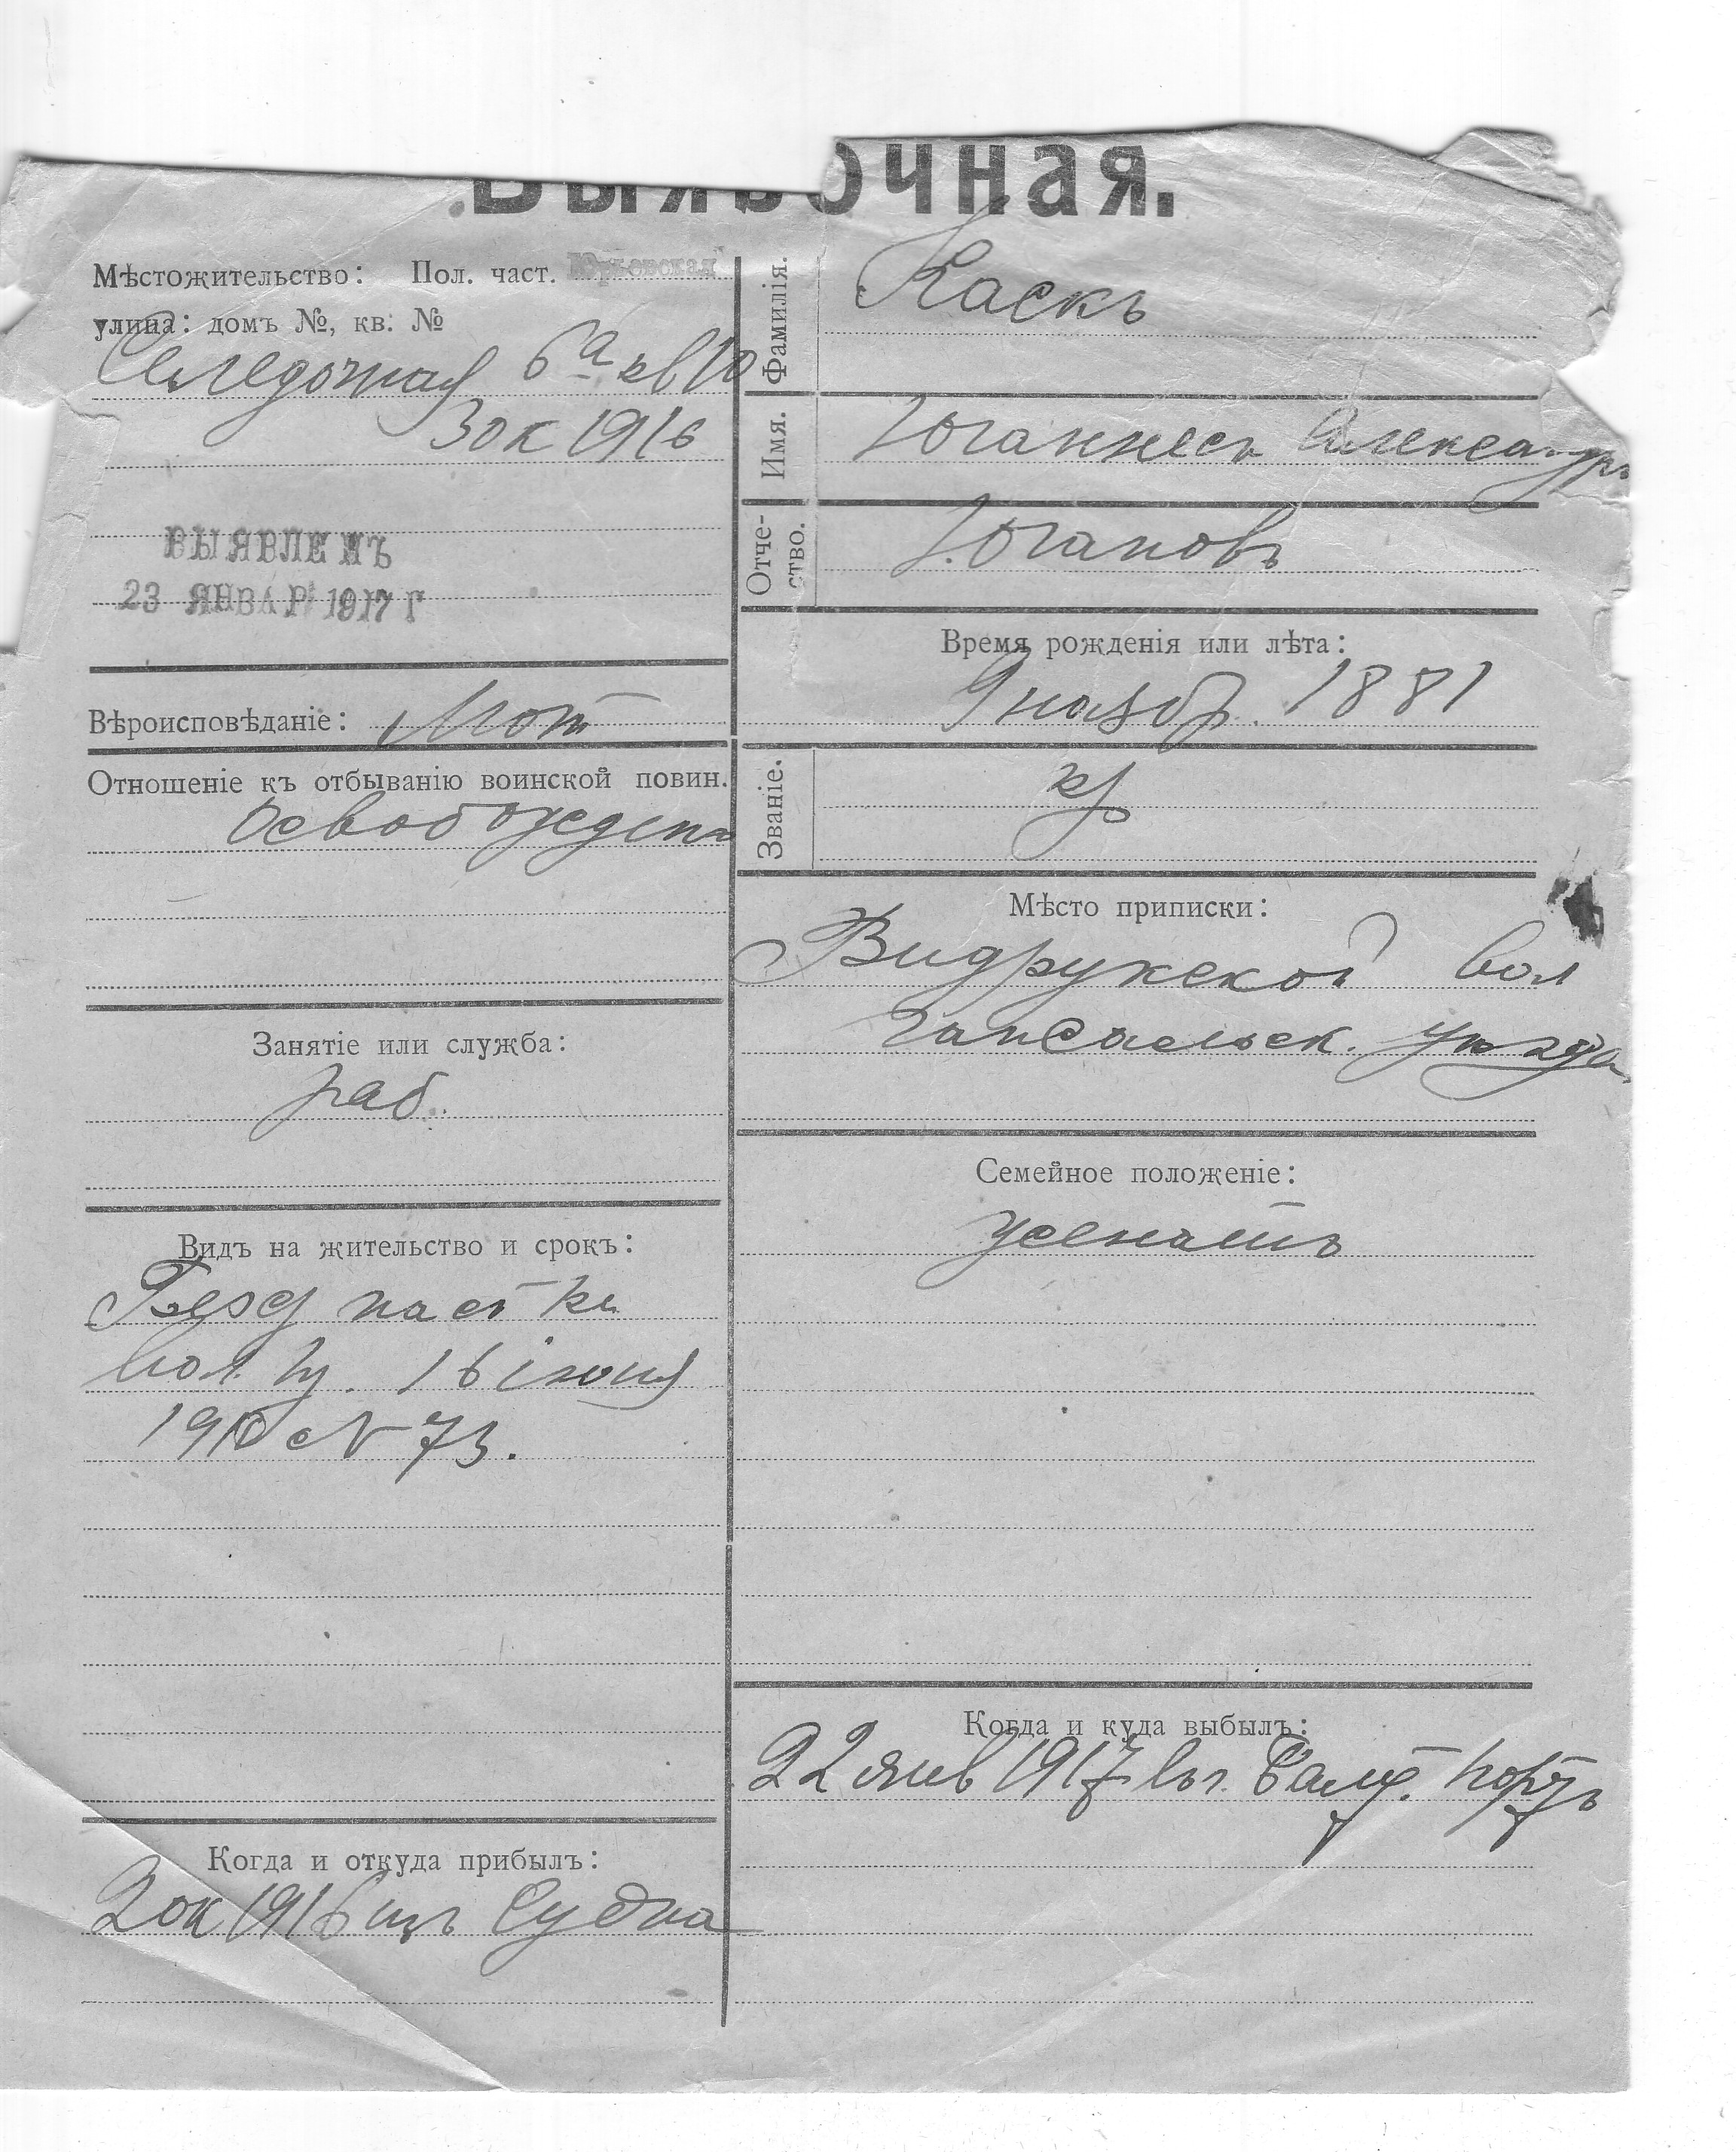 Выявочная.
Мѣстожительство: Пол. част. Юрьевская
улица: домъ №, кв. №
Селедочная 6а кв 10
3 ок 1916
ВЫЯВЛЕНЪ
23 ЯНВАР 1917 Г
Вѣроисповѣданіе: Лют
Отношеніе къ отбыванію воинской повин.
Освобожденъ
Занятіе или служба:
раб.
Видъ на жительство и срокъ:
вол. 16 іюня
1910 № 73.
Когда и откуда прибылъ:
2 ок 1916 изъ Судна
Фамилія.
Каскъ
Имя.
Юганнесъ Александръ
Отче-
ство.
Югановъ
Время рожденія или лѣта:
9 ноября 1881
Званіе.
кр
Мѣсто приписки:
Видрукской вол
Гапсальск. уѣзда
Семейное положеніе:
женатъ
Когда и куда выбылъ:
22 янв 1917 въ г. Балт. Портъ